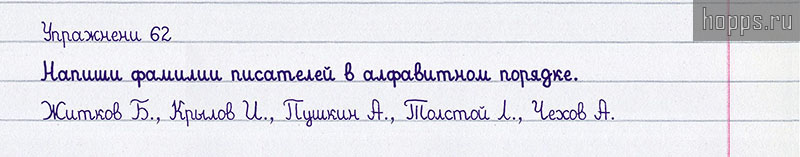 hopps.ru
Упражнени 62
Напиши фамилии писателей в алфавитном порядке.
Житков Б., Крылов И., Пушкин А., Толстой Л., Чехов А.